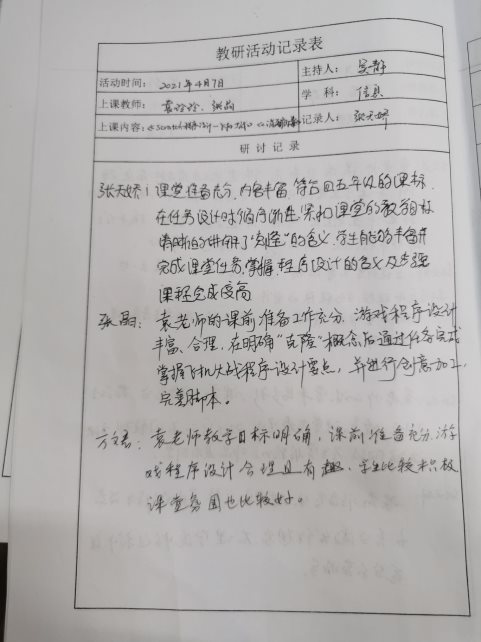 教研活动记录表
活动时间： 2021年4月7日 主持人： 吴静
上课教师： 袁玲玲、张晶 学 科： 信息
上课内容： 《Scratch程序设计—飞机大战》 记录人： 张天娇
研讨记录
张天娇：课堂准备充分，内容丰富，符合四五年级的课标，
在任务设计时循序渐进，紧扣课堂的教学目标
清晰的讲解了“克隆”的含义，学生能够丰富并
完成课堂任务，掌握程序设计的含义及步骤
课程完成度高
张晶：袁老师的课前准备工作充分，游戏程序设计
丰富、合理，在明确“克隆”概念后通过任务完成
掌握飞机大战程序设计要点，并进行创意加工，
完善脚本。
袁老师教学目标明确，课前准备充分，游
戏程序设计合理且有趣，学生比较积极
课堂氛围也比较好。